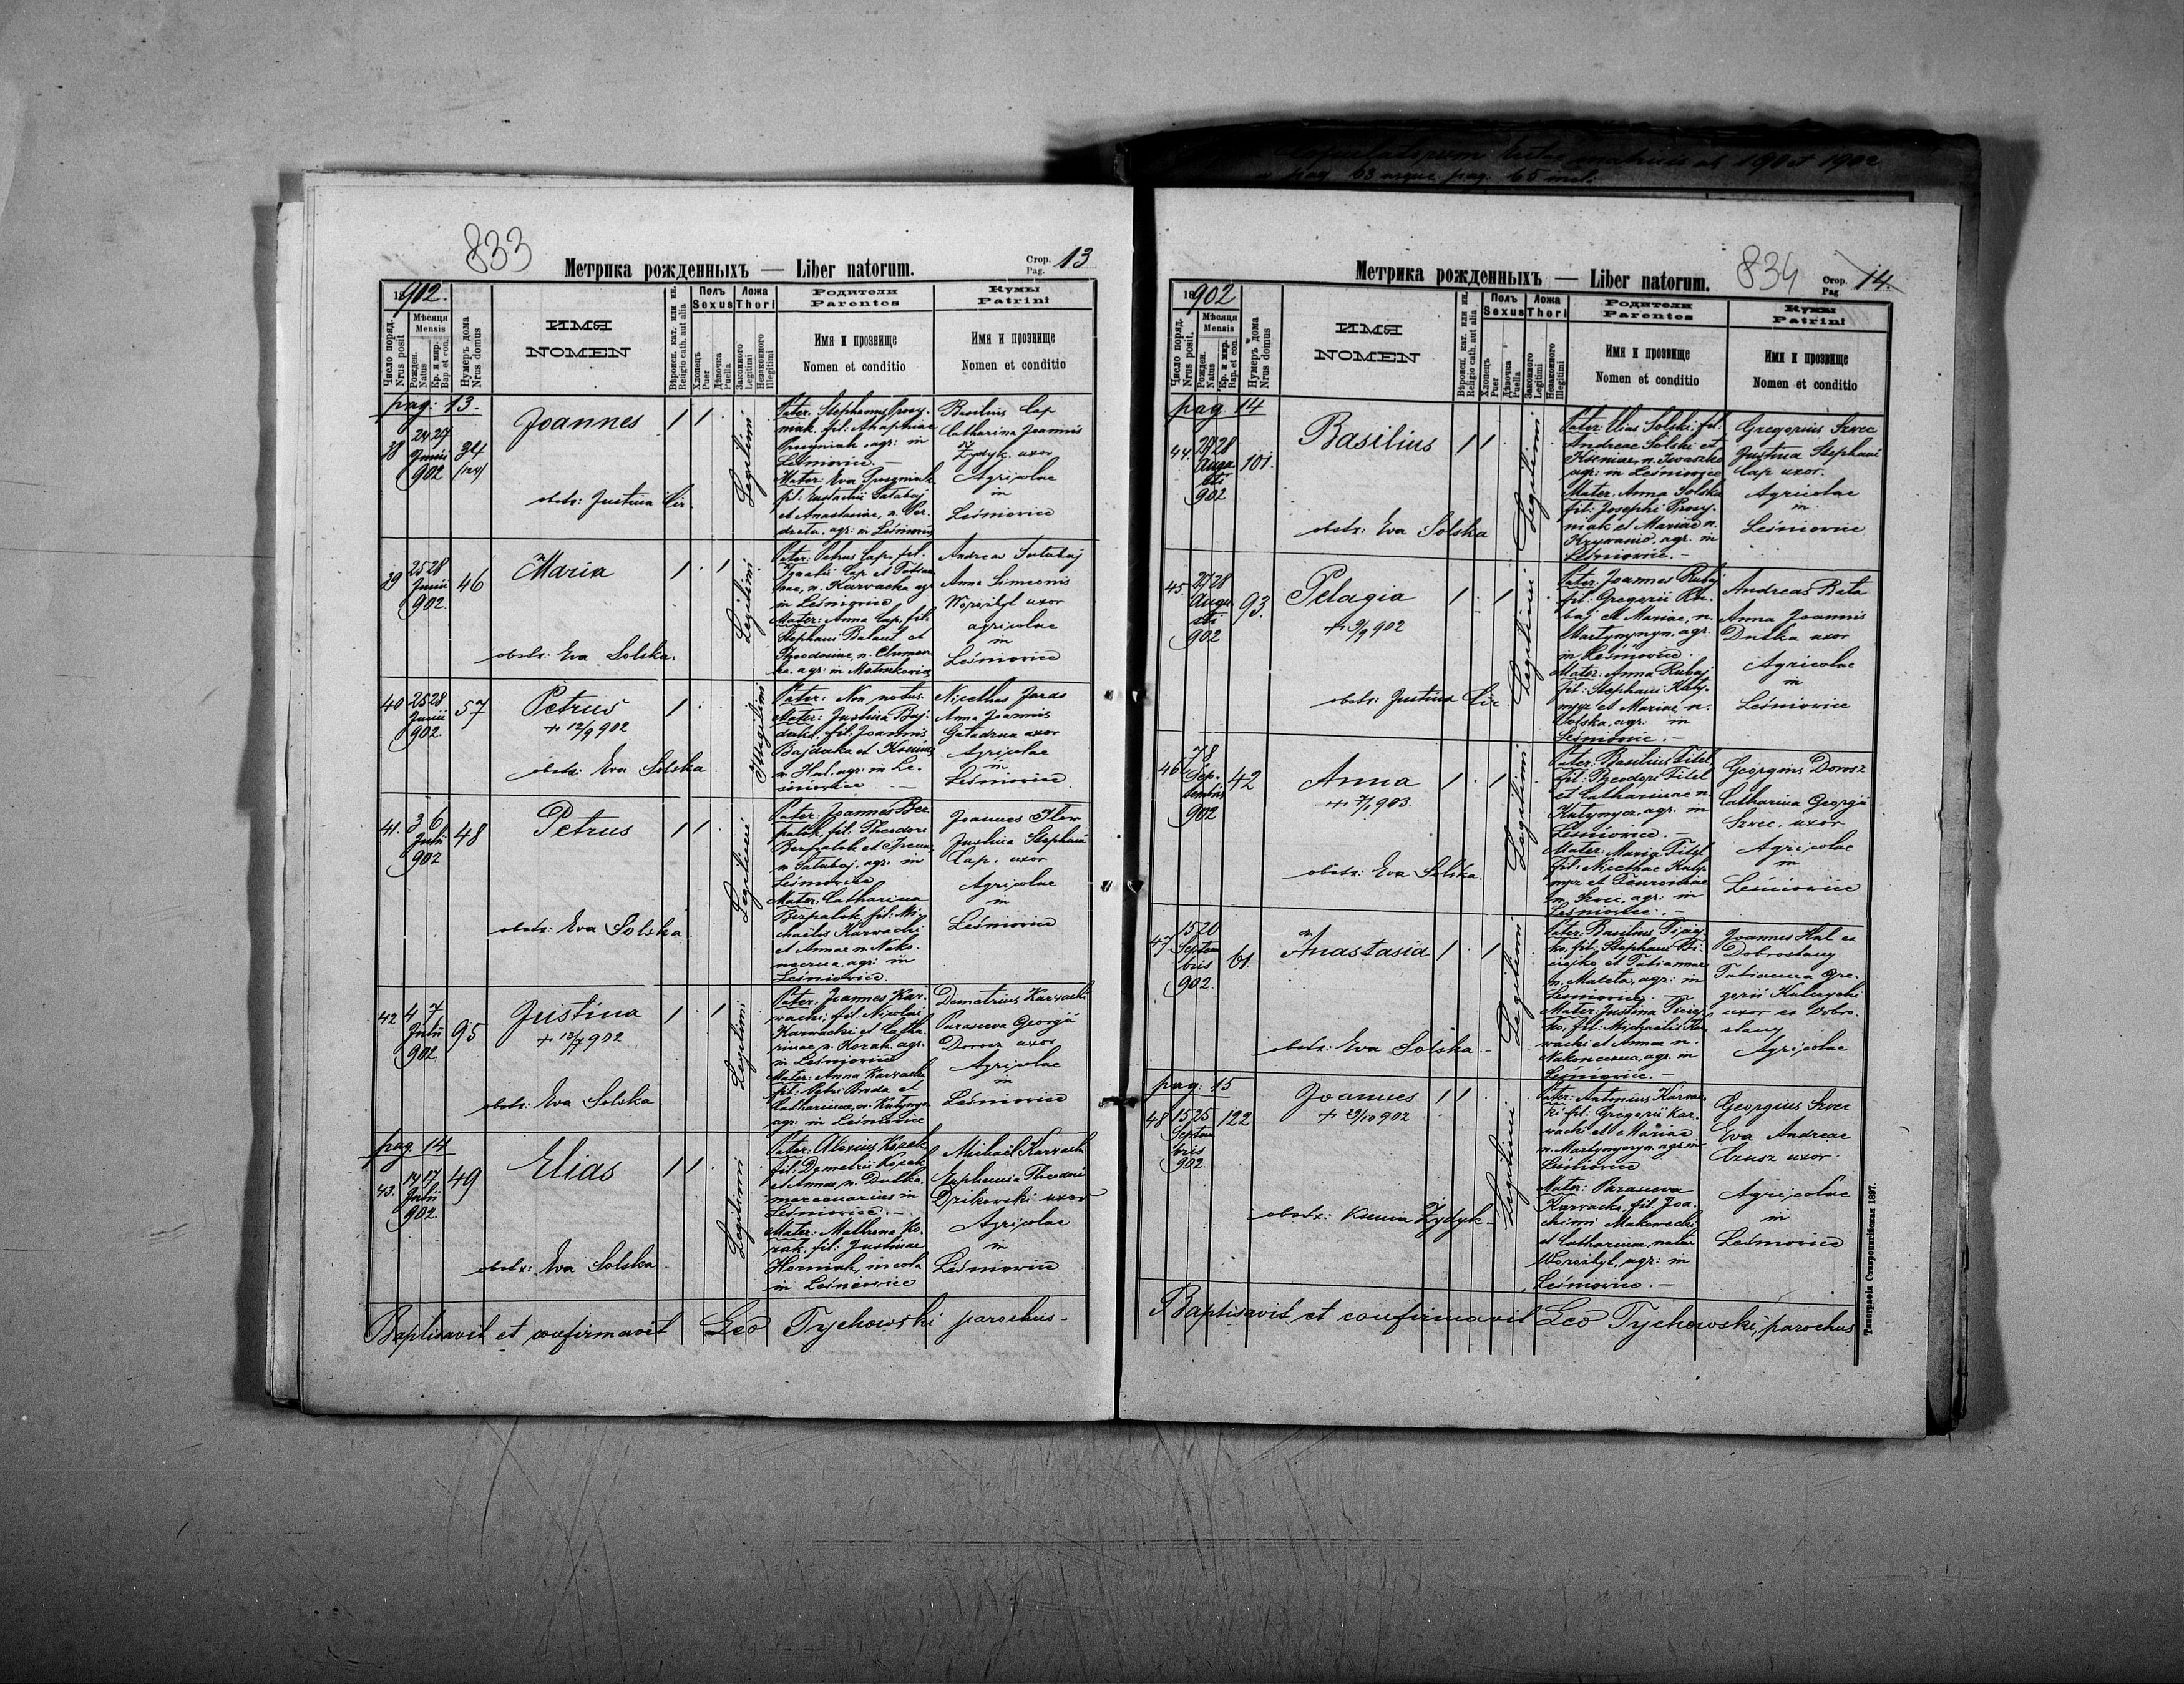 Copulatorum huius matricis ab 1901 et 1902
a pag 63 usque pag. 65 incl.
833
Метрика рожденныхъ — Liber natorum.
Стор. Pag. 13
1902.
Число поряд. Nrus posit.
Мѣсяця Mensis
Рожден. Natus
Кр. и мир. Bap. et con.
Нумеръ дома Nrus domus
ИМЯ
NOMEN
Вѣроисп. кат. или ин. Religio cath. aut alia
Полъ Sexus
Хлопець Puer
Дѣвочка Puella
Ложа Thori
Законного Legitimi
Незаконного Illegitimi
Родители
Parentes
Имя и прозвище
Nomen et conditio
Кумы
Patrini
Имя и прозвище
Nomen et conditio
pag: 13.
38
24 27
Junii
902
34
Joannes
obstx: Justina Cir
1 1
Legitimi
Pater: Stephanus Prosy-
niak, fil: Agaphiae
Prosyniak, agr: in
Leśniovice. —
Mater: Eva Prosyniak
fil: Eustachii Satabaj
et Anastasiae, n.
agr: in Leśniovice
Basilius Cap
Catharina Joannis
Zydyk. uxor
Agricolae
in
Leśniovice
39
25 28
Junii
902.
46
Maria
obstx: Eva Solska.
1 1
Legitimi
Pater: Petrus Cap, fil.
Ignatii Cap et Tatian-
nae, n. Karwacka agr
in Leśniovice
Mater: Anna Cap, fil.
Stephani Balaut et
Theodosiae, n.
agr: in
Andreas Satabaj
Anna Simeonis
Worożbyt uxor
agricolae
in
Leśniovice
40
25 28
Junii
902.
57
Petrus
+ 12/9 902
obstx: Eva Solska
1
Illegitimi
Pater: Non notus.
Mater: Justina Baj-
daka, fil. Joannis
Bajdaka et Kseniae
n. Hul. agr: in Le-
śniovice —
Nicethas Jaras
Anna Joannis
uxor
Agricolae
in
Leśniovice
41.
3 6
Julii
902
48
Petrus
obstx: Eva Solska
1 1
Legitimi
Pater: Joannes Bez-
palok, fil. Theodori
Bezpalok et Irenae,
n. Sataboj, agr. in
Leśniovice
Mater: Catharina
Bezpalok fil: Mi-
chaelis Karwacki
et Annae n. Nako-
neczna, agr: in
Leśniovice
Joannes
Justina Stephani
Cap. uxor
Agricolae
in
Leśniovice
42
4 7
Julii
902.
95
Justina
+ 13/7 902
obstx: Eva Solska
1 1
Legitimi
Pater: Joannes Kar-
wacki, fil. Nicolai
Karwacki et Catha-
rinae n. Kozak. agr.
in Leśniovice
Mater: Anna Karwacka
fil: Petri Buda et
Catharinae, n. Katynycz
agr: in Leśniovice
Demetrius Karwacki
Parasceva Georgii
Dorosz uxor
Agricolae
in
Leśniovice
pag. 14
43.
14 17
Julii
902.
49
Elias
obstx: Eva Solska
1 1
Legitimi
Pater: Alexius Kozak
fil: Demetrii Kozak
et Annae, n. Dutka,
mercenarius in
Leśniovice. —
Mater: Mathrona Ko-
zak, fil: Justinae
Horniak, incola
in Leśniovice
Michael Karwacki
Euphemia Theodori
Dzikowski uxor
Agricolae
in
Leśniovice
Baptisavit et confirmavit Leo Tychowski parochus.
834
Метрика рожденныхъ — Liber natorum.
Стор. Pag. 14.
1902
Число поряд. Nrus posit.
Мѣсяця Mensis
Рожден. Natus
Кр. и мир. Bap. et con.
Нумеръ дома Nrus domus
ИМЯ
NOMEN
Вѣроисп. кат. или ин. Religio cath. aut alia
Полъ Sexus
Хлопець Puer
Дѣвочка Puella
Ложа Thori
Законного Legitimi
Незаконного Illegitimi
Родители
Parentes
Имя и прозвище
Nomen et conditio
Кумы
Patrini
Имя и прозвище
Nomen et conditio
pag 14
44.
27 28
Augu
sti
902
101.
Basilius
obstx: Eva Solska
1 1
Legitimi
Pater: Elias Solski, fil.
Andreae Solski et
Kseniae, n. Iwaszko
agr: in Leśniovice
Mater: Anna Solska
fil: Josephi Prosy-
niak et Mariae n.
agr. in
Leśniovice. —
Gregorius Szwec
Justina Stephani
Cap uxor.
Agricolae
in
Leśniovice
45.
27 28
Augu
sti
902
93.
Pelagia
+ 3/9 902
obstx: Justina Cir
1 1
Legitimi
Pater: Joannes Rubaj
fil: Gregorii Ru-
baj et Mariae, n.
Martynyszyn, agr.
in Leśniovice.
Mater: Anna Rubaj
fil: Stephani Katy-
nycz et Mariae, n.
Solska, agr: in
Leśniovice. —
Andreas Bata
Anna Joannis
Dutka uxor
Agricolae
in
Leśniovice
46
7 8
Sep-
tembris
902
42
Anna
+ 7/1 903.
obstx: Eva Solska.
1 1
Legitimi
Pater: Basilius Fitel,
fil: Theodori Fitel
et Catharinae n.
Katynycz, agr: in
Leśniovice. —
Mater: Maria Fitel
fil: Nicethae Katy-
nycz et Tauroniae
n. Szwec, agr: in
Leśniovice. —
Georgius Dorosz
Catharina Georgii
Szwec. uxor
Agricolae
in
Leśniovice
47
15 20
Septem
bris
902.
61.
Anastasia
obstx: Eva Solska —
1 1
Legitimi
Pater: Basilius
ko, fil: Stephani
et Tatiannae
n. Maleta, agr: in
Leśniovice. —
Mater: Justina
ko, fil: Michaelis Kar-
wacki et Annae n.
Nakoneczna, agr. in
Leśniovice. —
Joannes Hul ex
Dobrostany
Tatianna Gre-
gorii
uxor ex Dobro-
stany
Agricolae
pag: 15
48
15 25
Septem
bris
902.
122
Joannes
+ 29/10 902
obstx: Ksenia Zydyk —
1 1
Legitimi
Pater: Antonius Karwac-
ki fil: Gregorii Kar-
wacki et Mariae
n. Martynyszyn, agr. in
Leśniovice
Mater: Parasceva
Karwacka, fil. Joa-
chimi Makowecki
et Catharinae, natae
Worożbyt, agr: in
Leśniovice. —
Georgius Szwec
Eva Andreae
uxor.
Agricolae
in
Leśniovice
Baptisavit et confirmavit Leo Tychowski, parochus
Типографія Ставропигійская 1897.